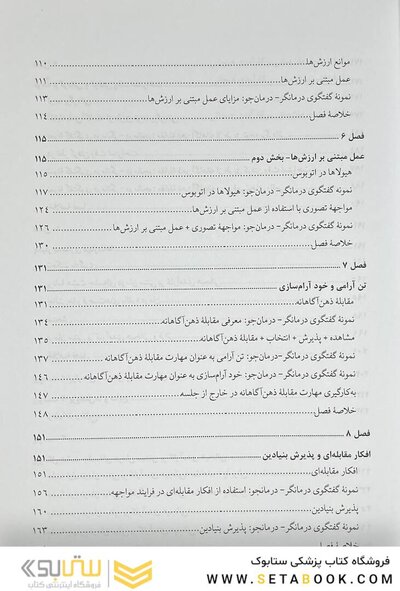 موانع ارزش‌ها ۱۱۰
عمل مبتنی بر ارزش‌ها ۱۱۱
نمونهٔ گفتگوی درمانگر- درمان‌جو: مزایای عمل مبتنی بر ارزش‌ها ۱۱۳
خلاصهٔ فصل ۱۱۴
فصل ۶ ۱۱۵
عمل مبتنی بر ارزش‌ها- بخش دوم ۱۱۵
هیولاها در اتوبوس ۱۱۵
نمونه گفتگوی درمانگر- درمان‌جو: هیولاها در اتوبوس ۱۱۷
مواجههٔ تصوری با استفاده از عمل مبتنی بر ارزش‌ها ۱۲۴
نمونهٔ گفتگوی درمانگر- درمان‌جو: مواجههٔ تصوری + عمل مبتنی بر ارزش‌ها ۱۲۶
خلاصهٔ فصل ۱۳۰
فصل ۷ ۱۳۱
تن آرامی و خود آرام‌سازی ۱۳۱
مقابلهٔ ذهن‌آگاهانه ۱۳۱
نمونهٔ گفتگوی درمانگر- درمان‌جو: معرفی مقابلهٔ ذهن‌آگاهانه ۱۳۴
مشاهده + پذیرش + انتخاب + مقابلهٔ ذهن‌آگاهانه ۱۳۵
نمونهٔ گفتگوی درمانگر-درمان‌جو: تن آرامی به عنوان مهارت مقابلهٔ ذهن‌آگاهانه ۱۳۷
نمونهٔ گفتگوی درمانگر- درمان‌جو: خود آرام‌سازی به عنوان مهارت مقابلهٔ ذهن‌آگاهانه ۱۴۶
به‌کارگیری مهارت مقابلهٔ ذهن‌آگاهانه در خارج از جلسه ۱۴۷
خلاصهٔ فصل ۱۴۸
فصل ۸ ۱۵۱
افکار مقابله‌ای و پذیرش بنیادین ۱۵۱
افکار مقابله‌ای ۱۵۱
نمونهٔ گفتگوی درمانگر- درمانجو: استفاده از افکار مقابله‌ای در فرایند مواجهه ۱۵۶
پذیرش بنیادین ۱۶۰
نمونهٔ گفتگوی درمانگر- درمانجو: پذیرش بنیادین ۱۶۳
خلاصهٔ فصل
فروشگاه کتاب پزشکی ستابوک
WWW.SETABOOK.COM
ستابوک
فروشگاه اینترنتی کتاب